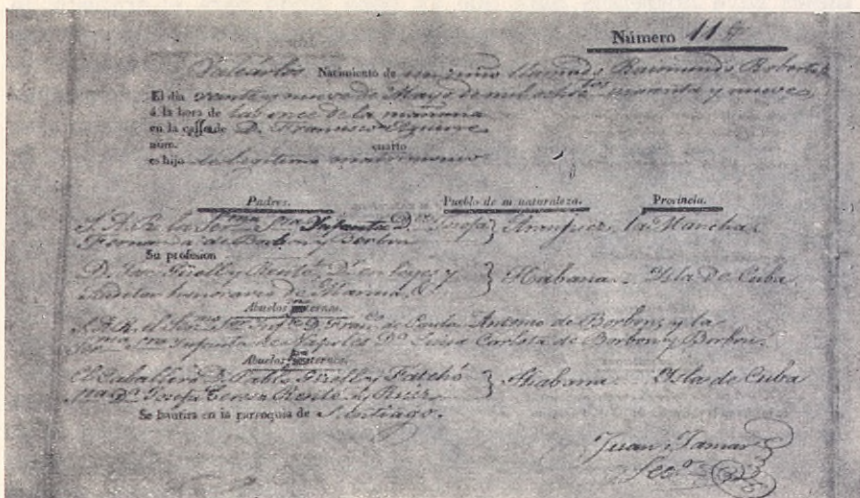 Número 11
Valcarlos Nacimiento de un niño llamado Raimundo Roberto
El dia veinte y nueve de Mayo de mil ochotos cuarenta y nueve
á la hora de las once de la mañana
en la casa de D. Francisco Aguirre
núm. cuarto
es hijo de legítimo matrimonio
Padres. Pueblo de su naturaleza. Provincia.
S. A. R. la Serma Sra Infanta Da Josefa } Aranjuez la Mancha
Fernanda de Borbon y Borbon
Su profesion
D. José Güell y Renté, Dr en leyes y } Habana. Isla de Cuba
Auditor honorario de Marina, &
Abuelos maternos.
S. A. R. el Sermo Sor Infte D. Franco de Paula Antonio de Borbon, y la
Serma Sra Infanta de Nápoles Da Luisa Carlota de Borbon y Borbon.
Abuelos paternos.
El Caballero D. Pablo Güell y } Habana. Isla de Cuba
Sra Da Josefa Teresa Renté de
Se bautiza en la parroquia de Santiago.
Juan Tamar
Seco